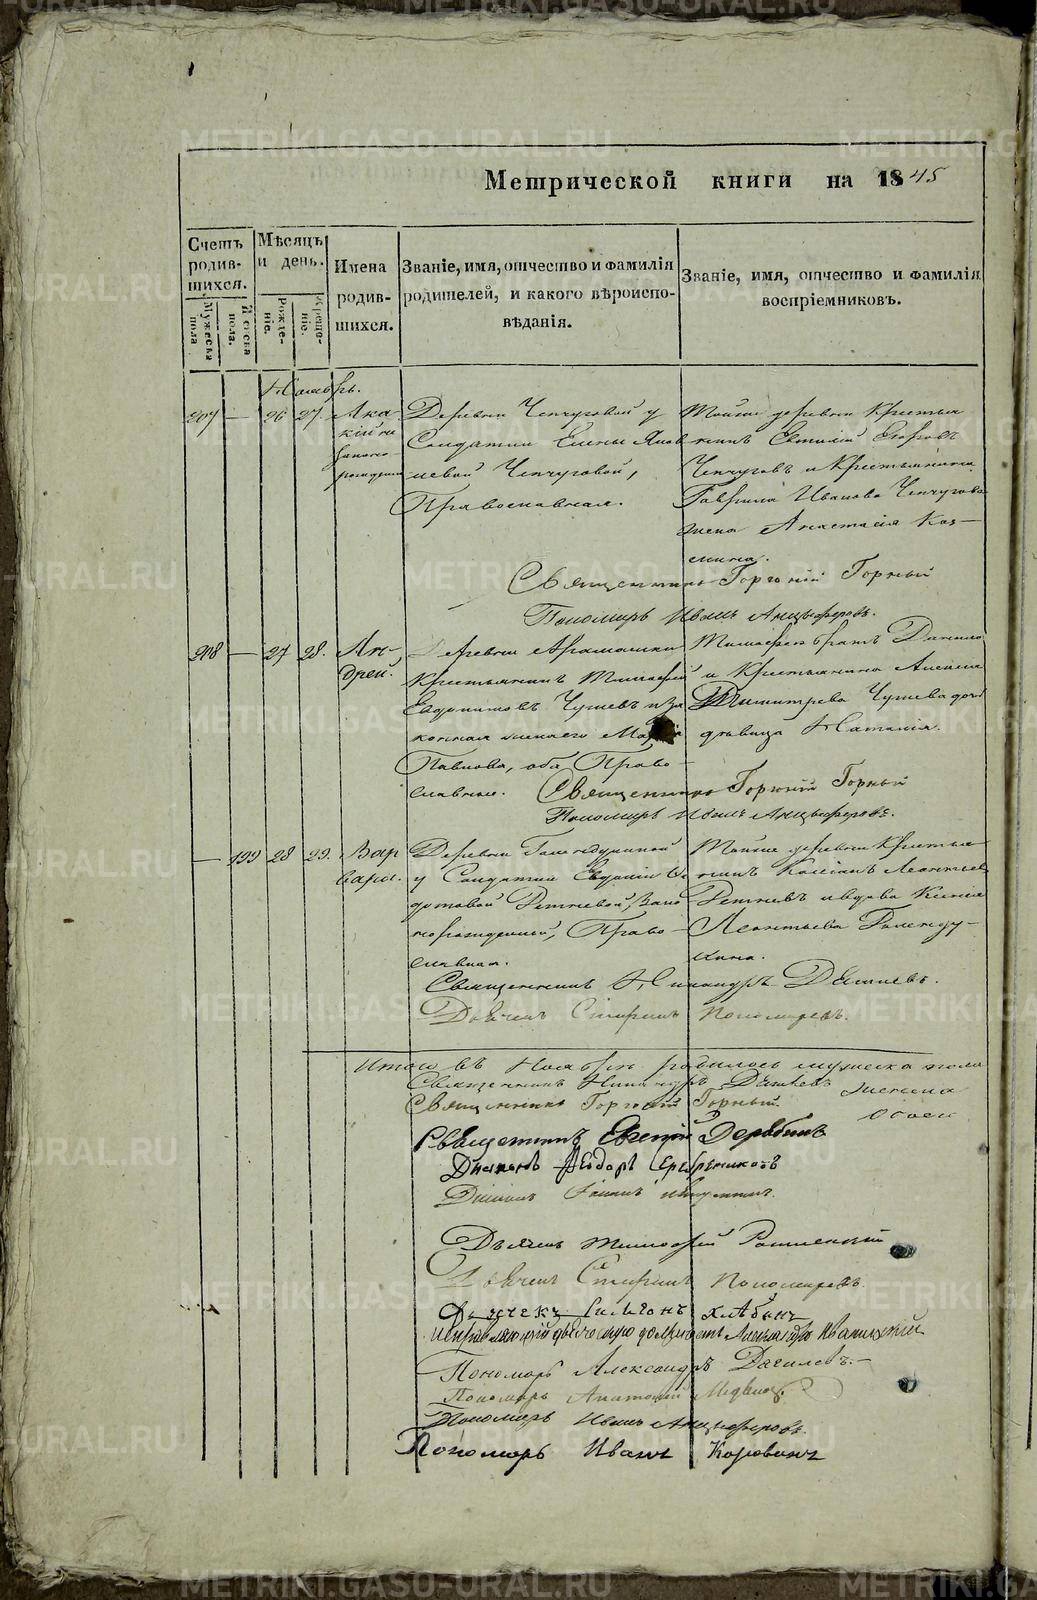 Метрической книги на 1845
Счетъ родив-шихся.
Мужеска пола
Женска пола.
Мѣсяцъ и день.
Рожде-ніе.
Креще-ніе.
Имена родив-шихся.
Званіе, имя, отчество и фамилія родителей, и какого вѣроиспо-вѣданія.
Званіе, имя, отчество и фамилія воспріемниковъ.
Ноябрь.
207 — 26 27. Ака-
кій
Деревни Чепчуговой у
Солдатки Елены Яков
левой Чепчуговой,
Православная.
Тойже деревни Крестья
нинъ Евтихій Егоровъ
Чепчуговъ и Крестьянина
Гаврила Иванова Чепчугова
жена Анастасія Коз—
мина.
Священникъ Горгоній Горный
Пономарь Иванъ Анцыферовъ.
208 — 27 28. Ан-
дрей.
Деревни
Крестьянинъ Тимофей
Евдокимовъ Чущевъ и за
конная жена его Марія
Павлова, оба Право-
славные.
братъ Данило
и Крестьянина Алексея
Димитрева Чущева дочь
дѣвица Наталія.
Священникъ Горгоній Горный
Пономарь Иванъ Анцыферовъ.
— 199 28 29. Вар
вара.
Деревни Галендухиной
у Солдатки Евдокіи Ѳе
дотовой Ретневой,
Право-
славная.
Тойже деревни Крестья
нинъ Касіанъ Леонтьев
Ретневъ и вдова Ксенія
Леонтьева Галенду-
хина.
Священникъ Никандръ Дягилевъ.
Дьячекъ Спиридонъ Пономаревъ.
Итого въ Ноябрѣ родилось мужеска пола
женска
Священникъ Никандръ Дягилевъ
Священникъ Горгоній Горный.
Священникъ Евгеній Дерябинъ
Діаконъ Ѳедоръ Серебрениковъ
Діаконъ
Дьячекъ Тимофей
Дьячекъ Спиридонъ Пономаревъ.
Дьячекъ Симеонъ Хлѣбинъ
Исправляющій дьяческую должность Александръ
Пономарь Александръ Дягилевъ.—
Пономарь Анатолій
Пономарь Иванъ Анцыферовъ.
Пономарь Иванъ Коровинъ
METRIKI.GASO-URAL.RU